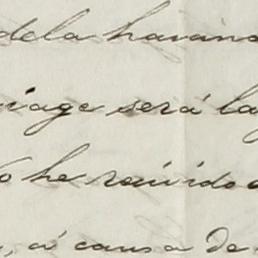 dela havana
viage será la
he recivido
á causa de